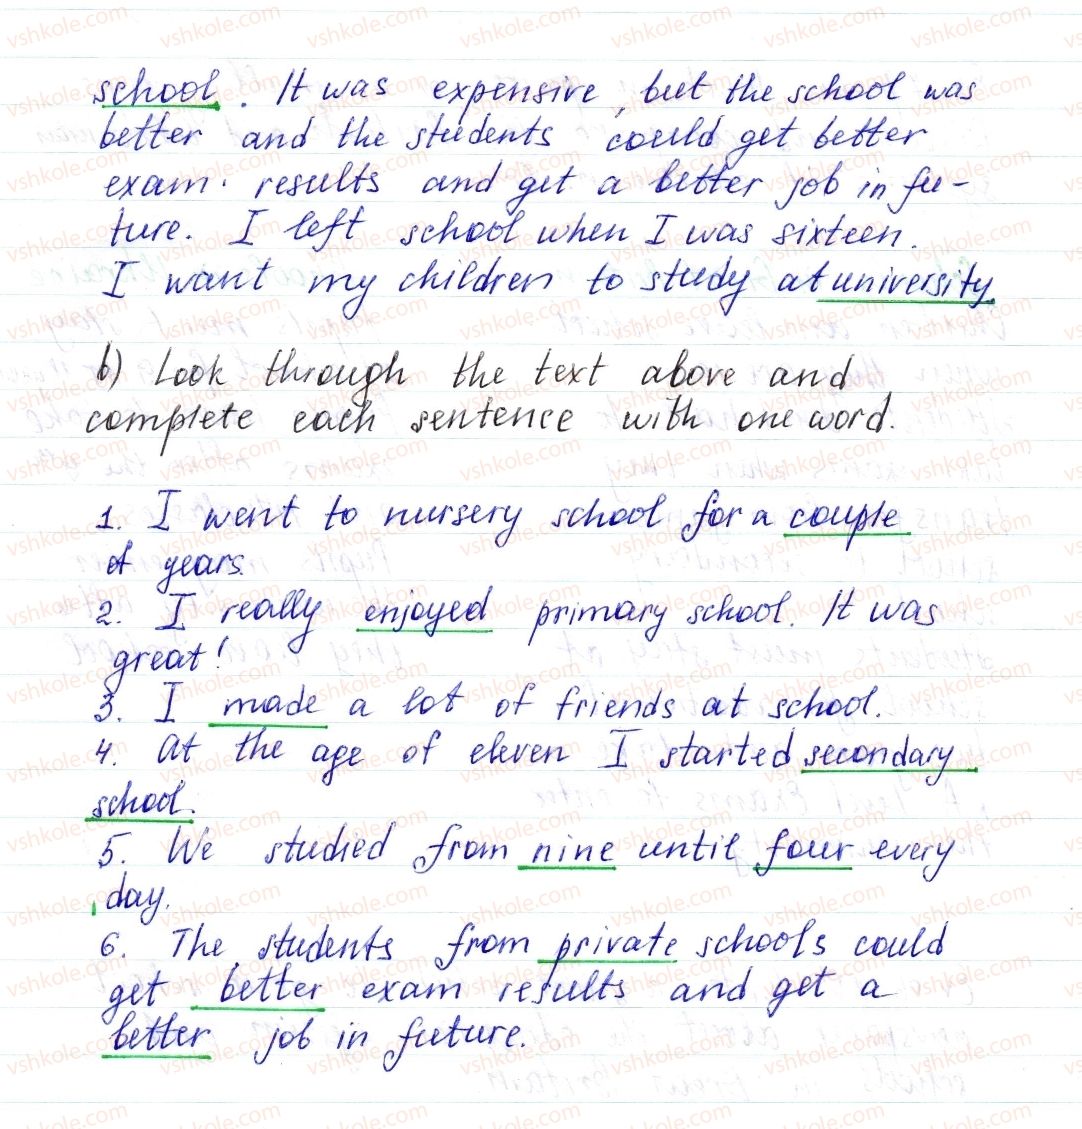 school. It was expensive, but the school was
better and the students could get better
exam. results and get a better job in fu-
ture. I left school when I was sixteen.
I want my children to study at university
b) Look through the text above and
complete each sentence with one word.
1. I went to nursery school for a couple
of years.
2. I really enjoyed primary school. It was
great!
3. I made a lot of friends at school.
4. At the age of eleven I started secondary
school.
5. We studied from nine until four every
day.
6. The students from private schools could
get better exam results and get a
better job in future.
vshkole.com